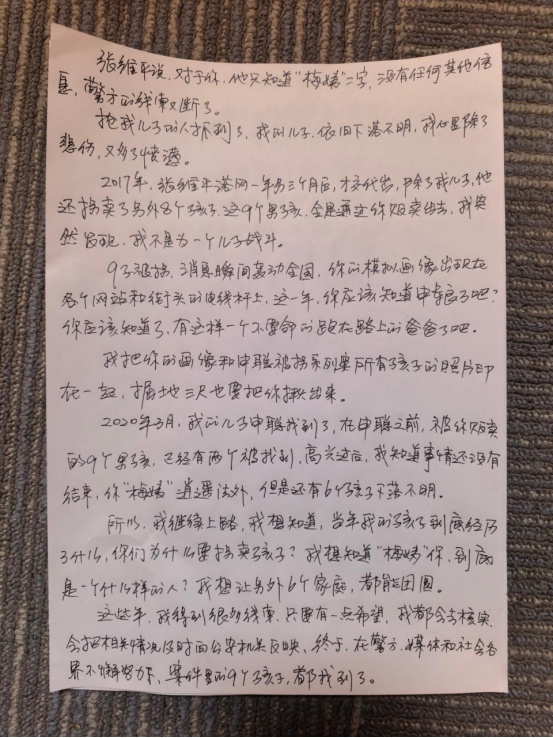 张维平说，对于你，他只知道“梅姨”二字，没有任何其他信
息，警方的线索又断了。
抢我儿子的人抓到了，我的儿子，依旧下落不明，我心里除了
悲伤，又多了愤懑。
2017年，张维平落网一年零三个月后，才交代出，除了我儿子，他
还拐卖了另外8个孩子，这9个男孩，全是通过你贩卖出去，我突
然发现，我不是为一个儿子战斗。
9子被拐，消息瞬间轰动全国，你的模拟画像出现在
各个网站和街头的电线杆上，这一年，你应该知道申军良了吧？
你应该知道了，有这样一个不要命的跑在路上的爸爸了吧。
我把你的画像和申聪被拐系列案所有孩子的照片印
在一起，掘地三尺也要把你揪出来。
2020年3月，我的儿子申聪找到了，在申聪之前，被你贩卖
的9个男孩，已经有两个被找到，高兴过后，我知道事情还没有
结束，你“梅姨”逍遥法外，但是还有6个孩子下落不明。
所以，我继续上路，我想知道，当年我的孩子到底经历
了什么，你们为什么要拐卖孩子？我想知道“梅姨”你，到底
是一个什么样的人？我想让另外6个家庭，都能团圆。
这些年，我得到很多线索，只要有一点希望，我都会去核实，
会把相关情况及时向公安机关反映，终于，在警方、媒体和社会各
界不懈努力下，案件里的9个孩子，都找到了。